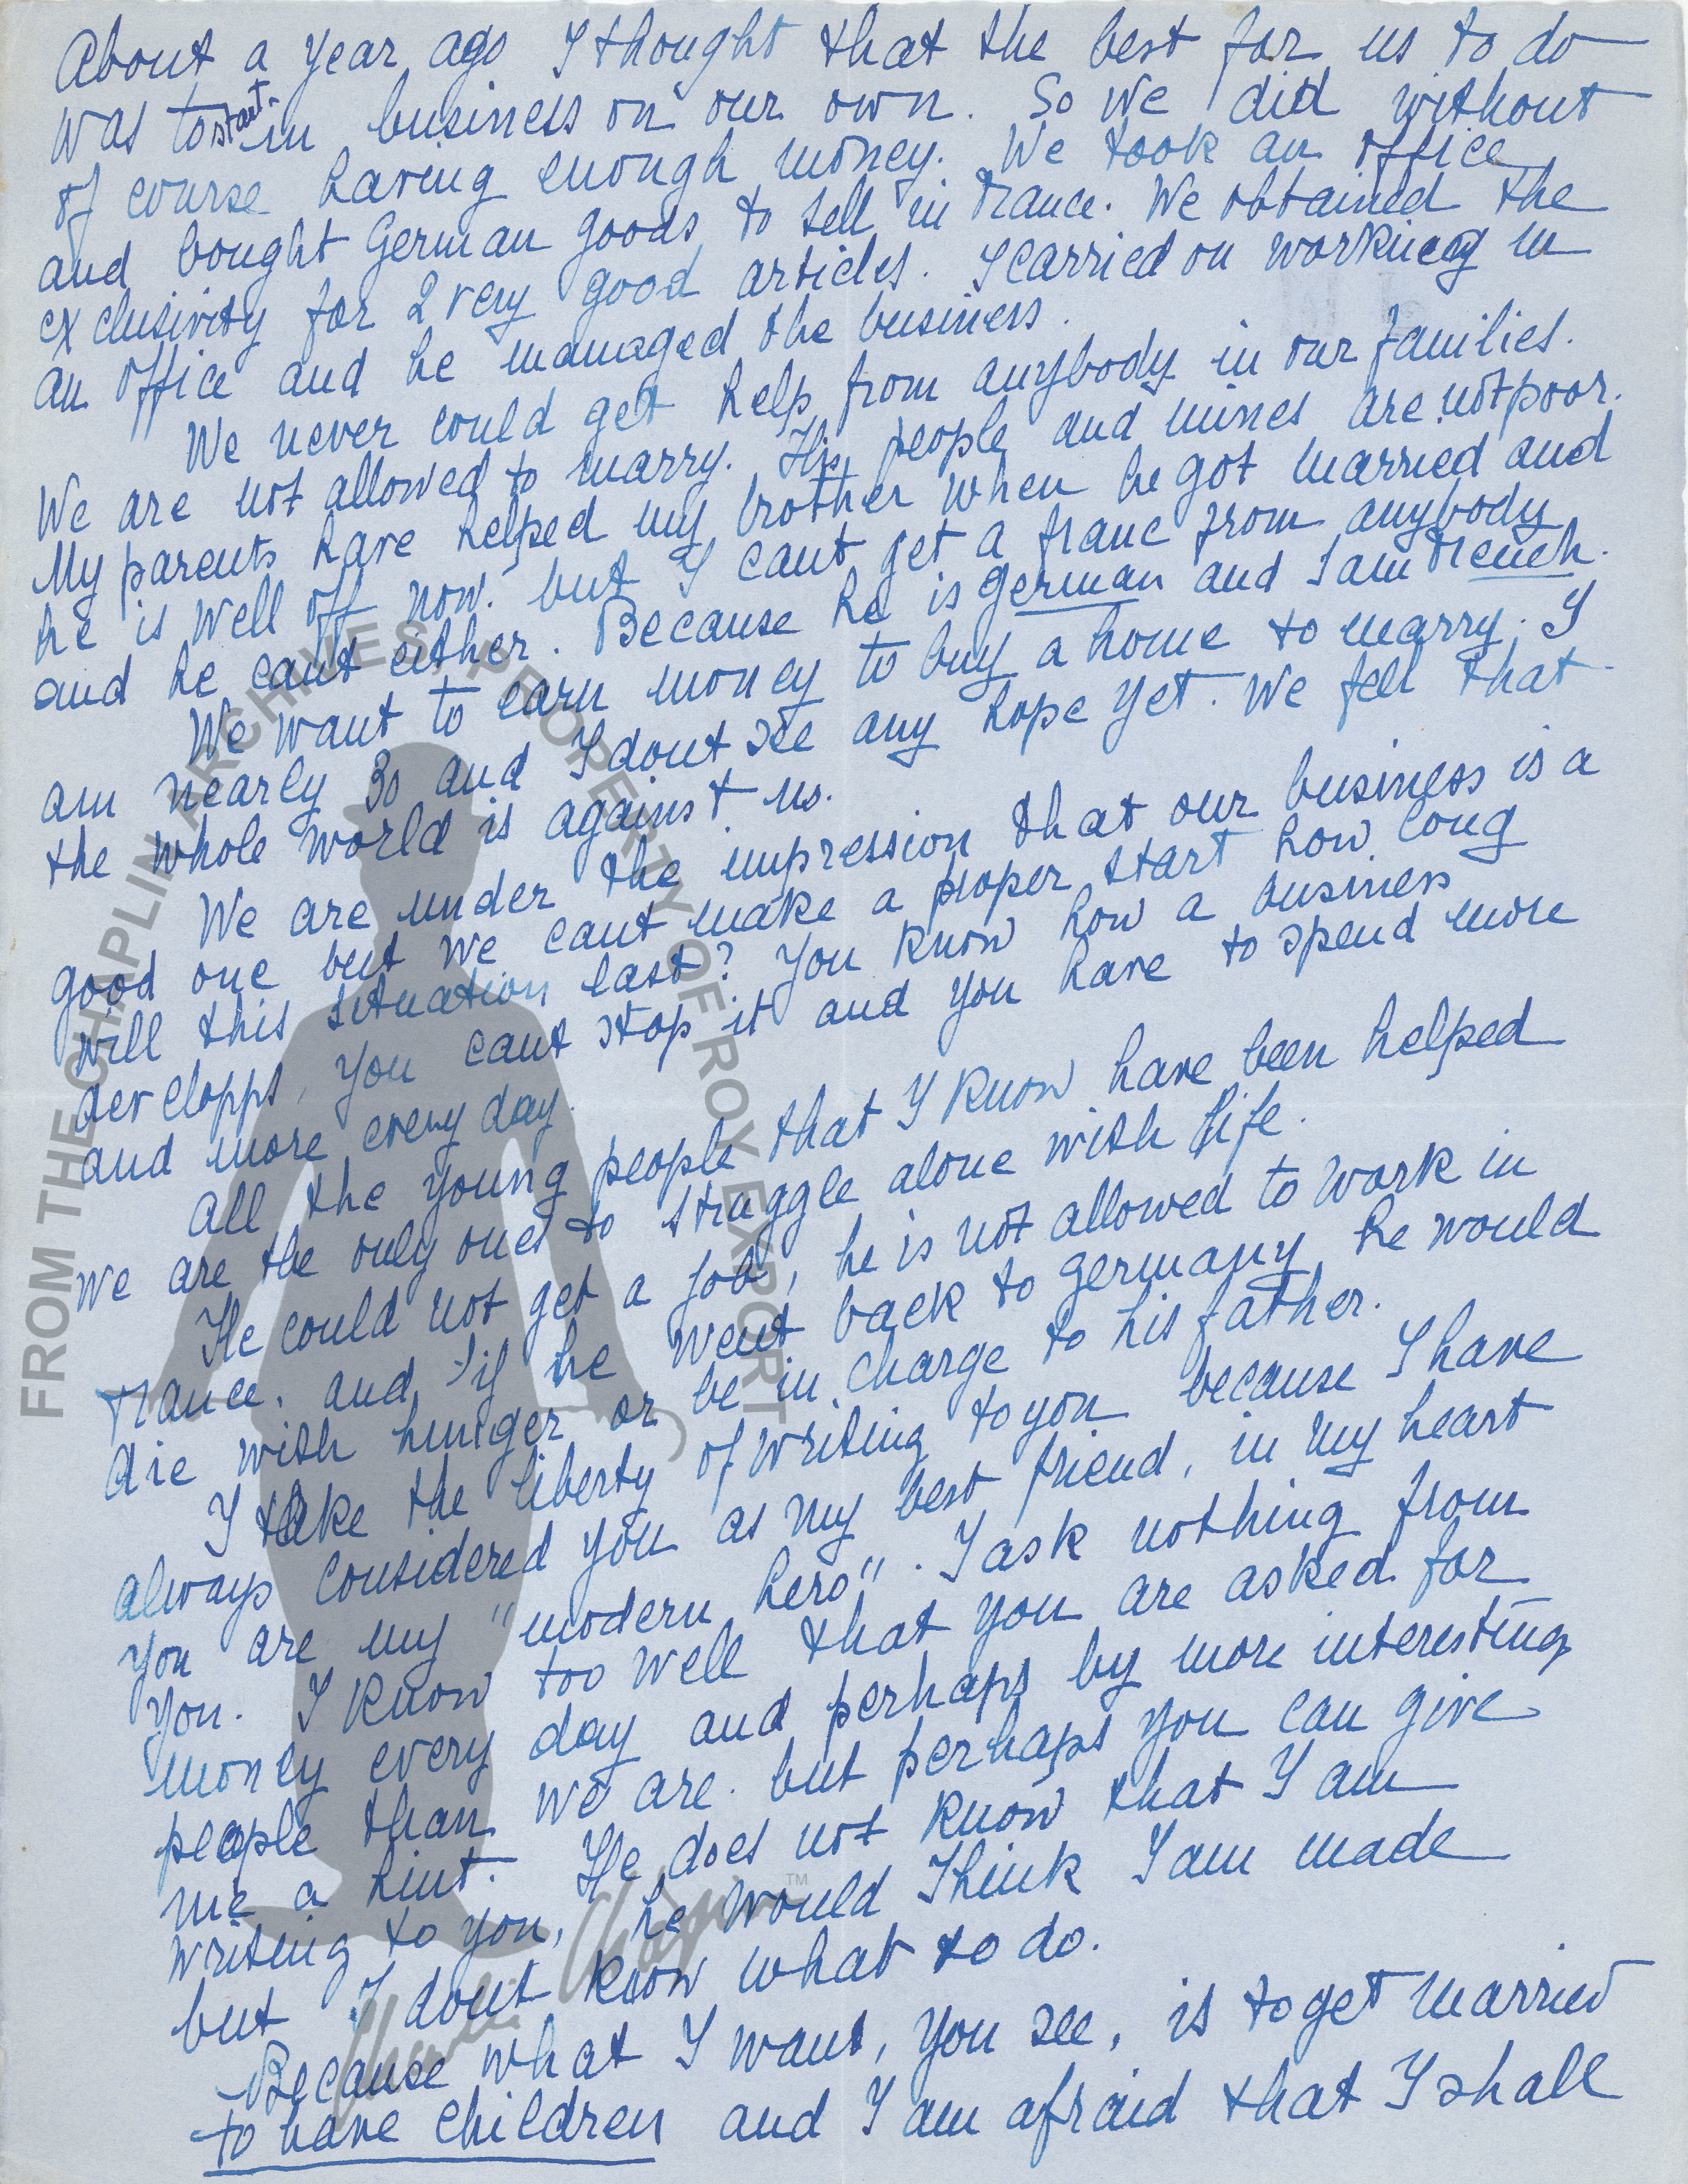 About a year ago I thought that the best for us to do
was to start in business on our own. So we did without
of course having enough money. We took an office
and bought German goods to sell in France. We obtained the
exclusivity for 2 very good articles. I carried on working in
an office and he managed the business.
We never could get help from anybody in our families.
We are not allowed to marry. His people and mines are not poor.
My parents have helped my brother when he got married and
he is well off now. but I cant get a franc from anybody
and he cant either. Because he is german and I am French.
We want to earn money to buy a home to marry. I
am nearly 30 and I dont see any hope yet. We fell that
the whole world is against us.
We are under the impression that our business is a
good one but we cant make a proper start how long
will this situation last? You know how a business
developps, you cant stop it and you have to spend more
and more every day.
All the young people that I know have been helped
we are the only ones to struggle alone with life.
He could not get a job, he is not allowed to work in
France. and if he went back to germany he would
die with hunger or be in charge to his father.
I take the liberty of writing to you because I have
always considered you as my best friend, in my heart
you are my "modern hero". I ask nothing from
you. I know too well that you are asked for
money every day and perhaps by more interesting
people than we are. but perhaps you can give
me a hint. He does not know that I am
writing to you, he would think I am made
but I dont know what to do.
Because what I want, you see, is to get married
to have children and I am afraid that I shall
FROM THE CHAPLIN ARCHIVES, PROPERTY OF ROY EXPORT
Charlie Chaplin ™